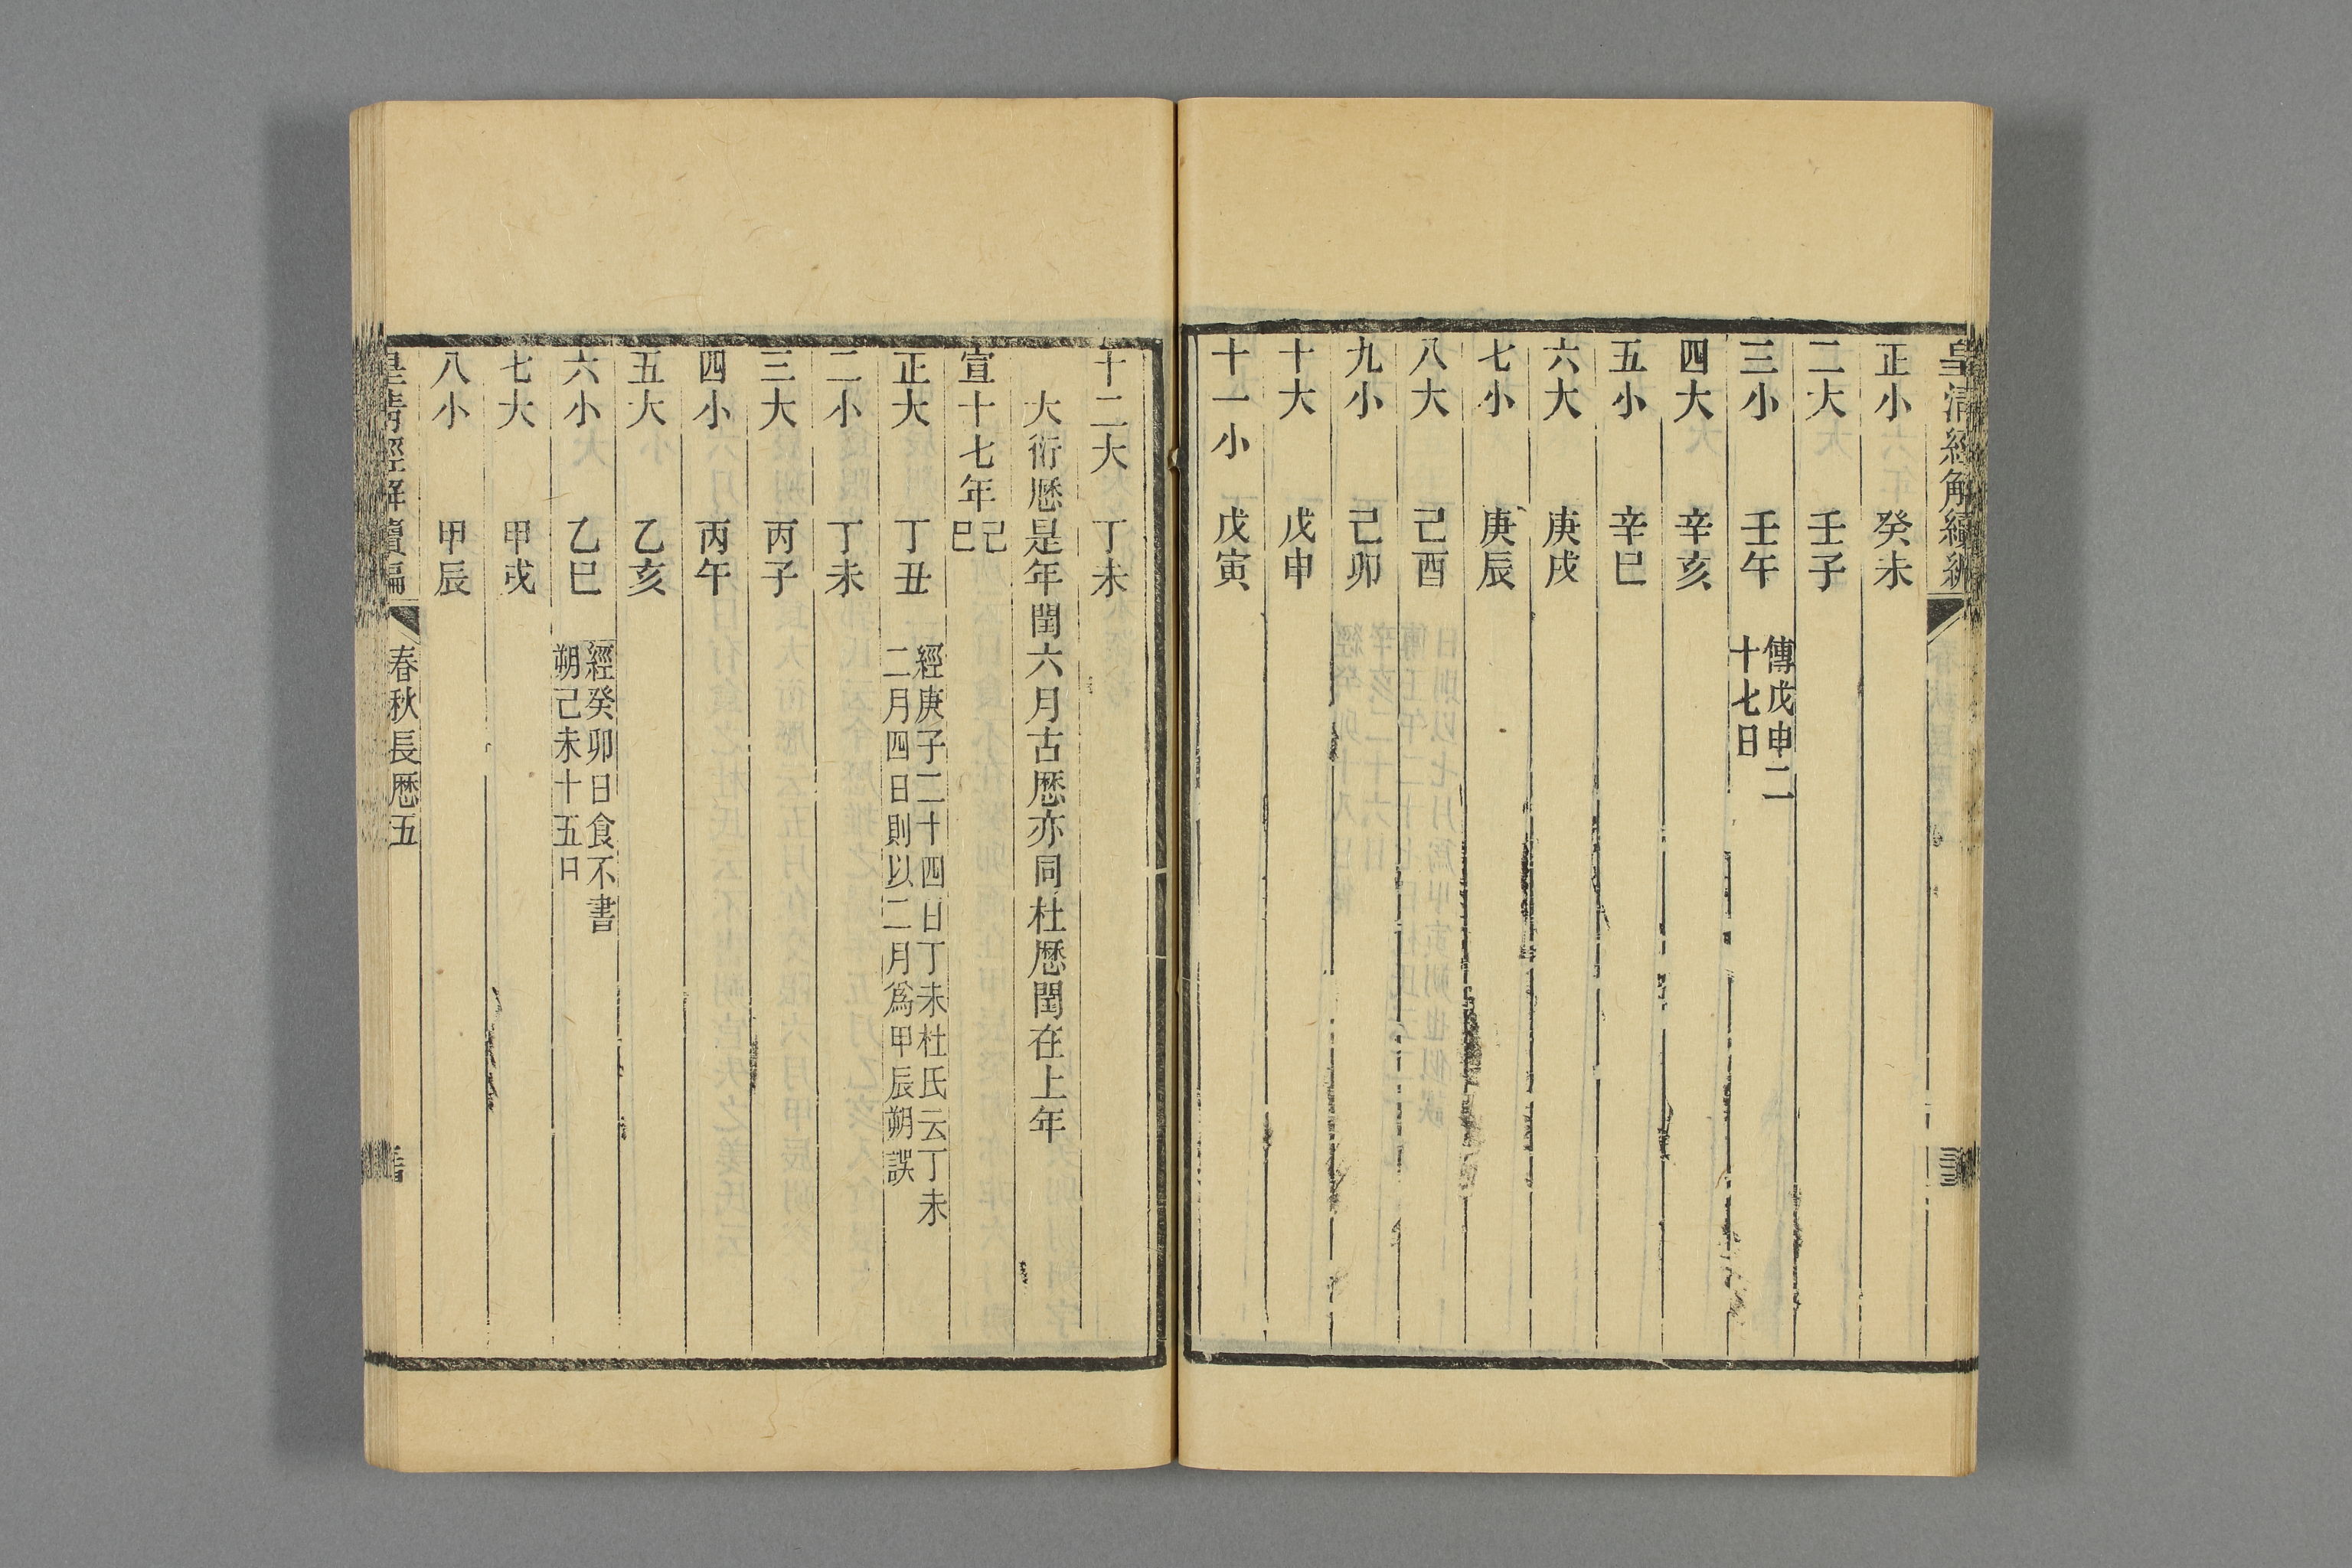 皇清經解續編
正小 癸未
二大 壬子
三小 壬午 傳戊申二
十七日
四大 辛亥
五小 辛巳
六大 庚戌
七小 庚辰
八大 己酉
九小 己卯
十大 戊申
十一小 戊寅
十二大 丁未
大衍厯是年閏六月古厯亦同杜厯閏在上年
宣十七年 己
巳
正大 丁丑 經庚子二十四日丁未杜氏云丁未
二月四日則以二月爲甲辰朔誤
二小 丁未
三大 丙子
四小 丙午
五大 乙亥
六小 乙巳 經癸卯日食不書
朔己未十五日
七大 甲戌
八小 甲辰
皇清經解續編 春秋長厯五